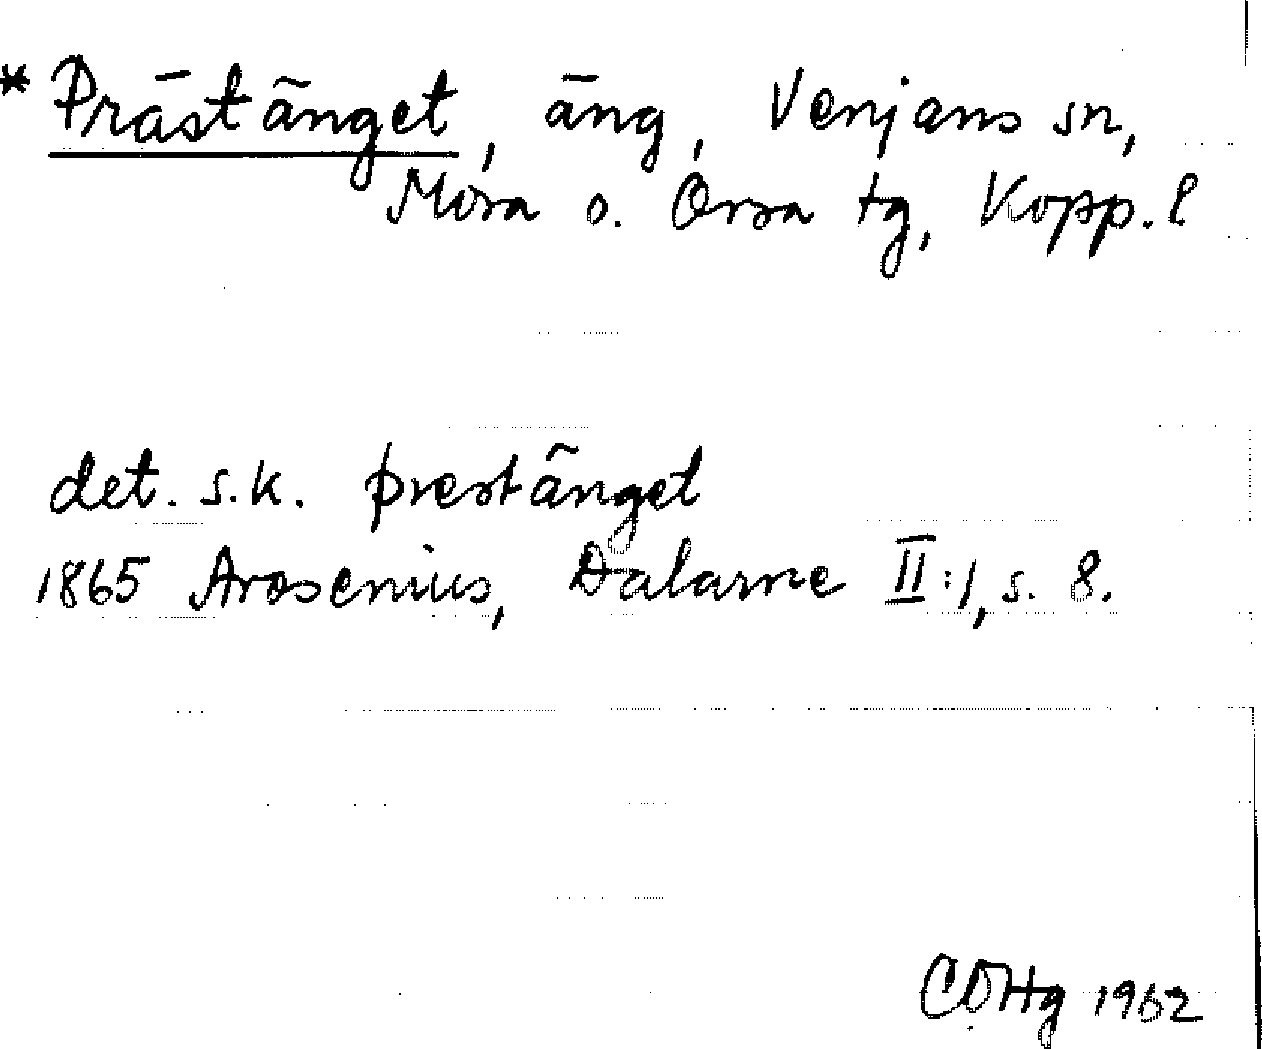 * Prästänget, äng, Venjans sn,
Mora o. Orsa tg, Kopp. l
det. s.k. prestänget
1865 Arosenius, Dalarne II:1, s. 8.
CDHg 1962